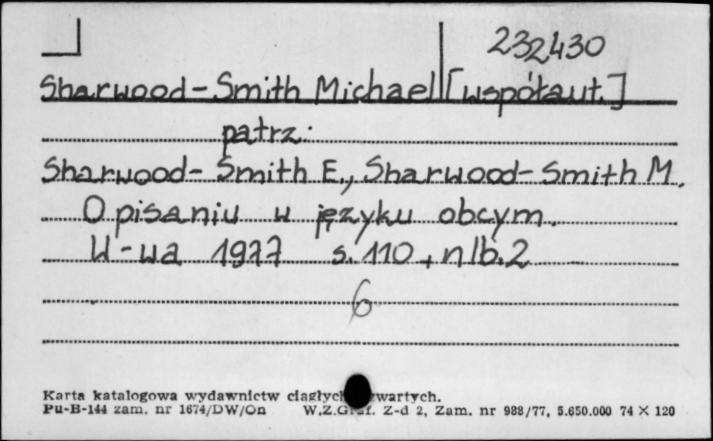 232430
Sharwood-Smith Michael [współaut.]
patrz:
Sharwood-Smith E., Sharwood-Smith M.
O pisaniu w języku obcym.
W-wa 1977 s. 110, nlb. 2
6
Karta katalogowa wydawnictw ciągłych zwartych.
Pu-B-144 zam. nr 1674/DW/On W.Z.Graf. Z-d 2, Zam. nr 988/77, 5.650.000 74 X 120